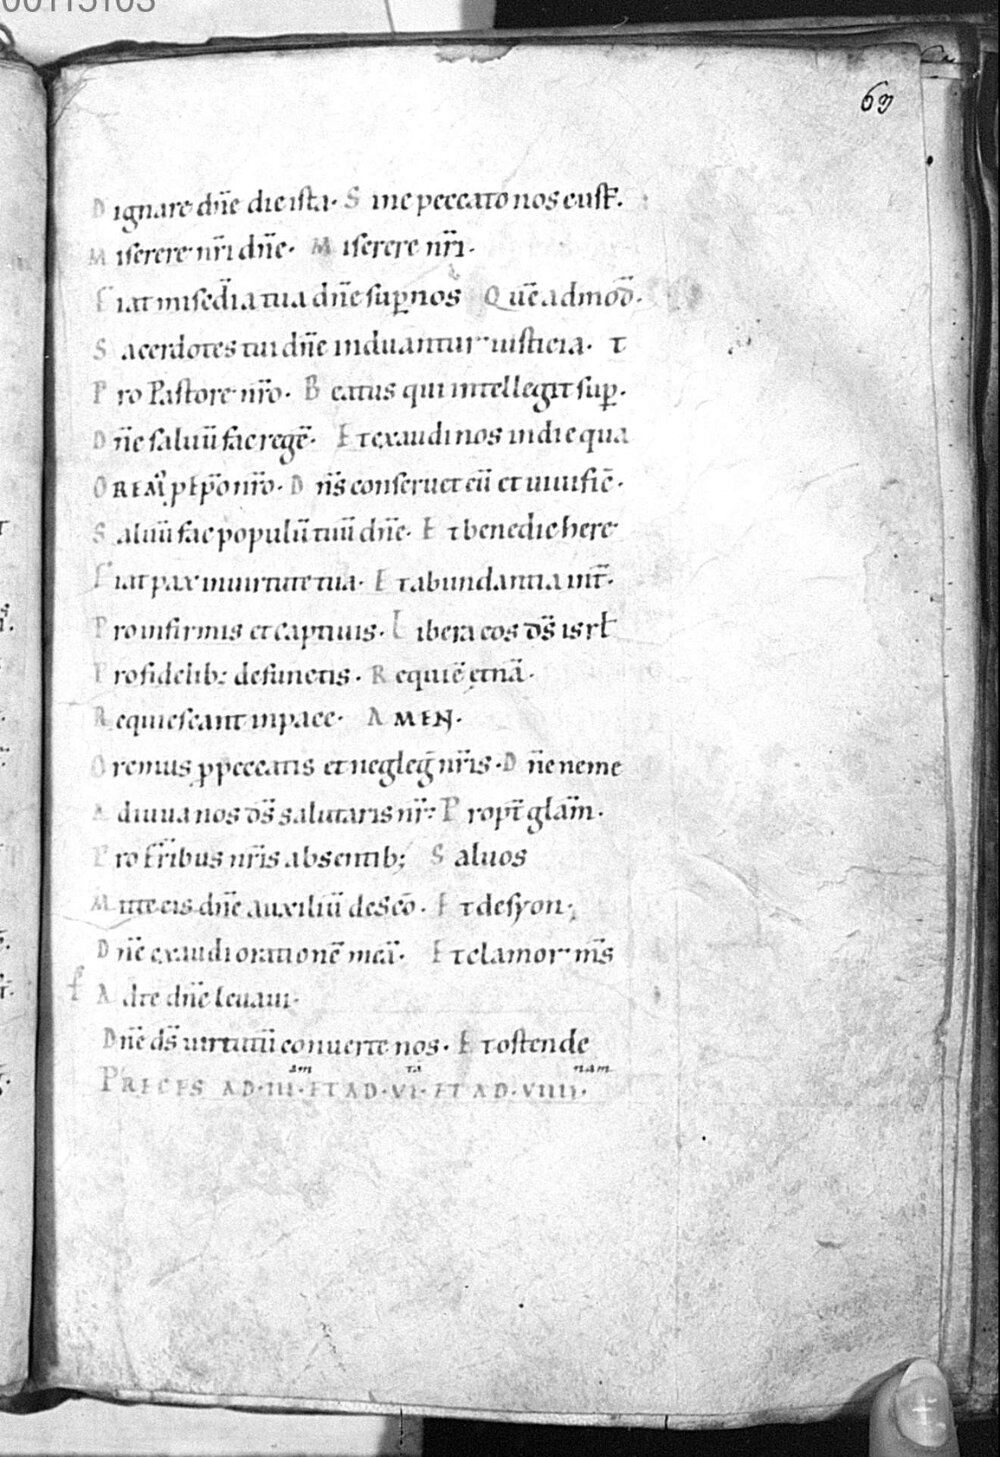 00115103
69
Dignare dn̄e die ista. Sine peccato nos cust̄.
Miserere nr̄i dn̄e. Miserere nr̄i.
Fiat mis̄edia tua dn̄e sup̱ nos Quē admod̄.
Sacerdotes tui dn̄e induantur iusticia. &
Pro Pastore nr̄o. Beatus qui intellegit sup̱.
Dn̄e saluū fac regē. Et exaudi nos in die qua
nr̄o. Dn̄s conseruet eū et uiuificē.
Saluū fac populū tuū dn̄e. Et benedic here
Fiat pax in uirtute tua. Et abundantia int̄.
Pro infirmis et captiuis. Libera eos ds̄ isrł
Pro fidelib: defunctis. Requiē etnā.
Requiescant in pace. AMEN.
Oremus p̱ peccatis et neglegē nr̄is. Dn̄e ne me
Adiuua nos ds̄ salutaris nr̄: Propt̄ glām.
Pro fr̄ibus nr̄is absentib; Saluos
Mitte eis dn̄e auxiliū de Scō. Et de syon;
Dn̄e exaudi orationē meā. Et clamor m̄s
Ad te dn̄e leuaui.
Dn̄e ds̄ uirtutū conuerte nos. Et ostende
am ta nam
PRECES AD.III.ET AD.VI.ET AD.VIIII.